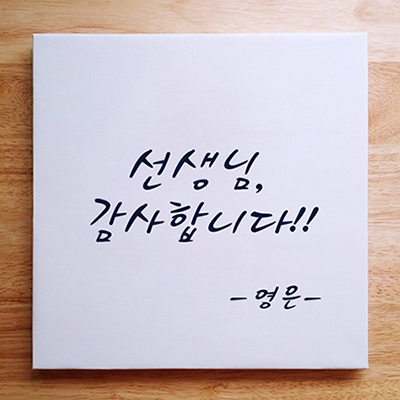 선생님,
감사합니다!!
-영은-